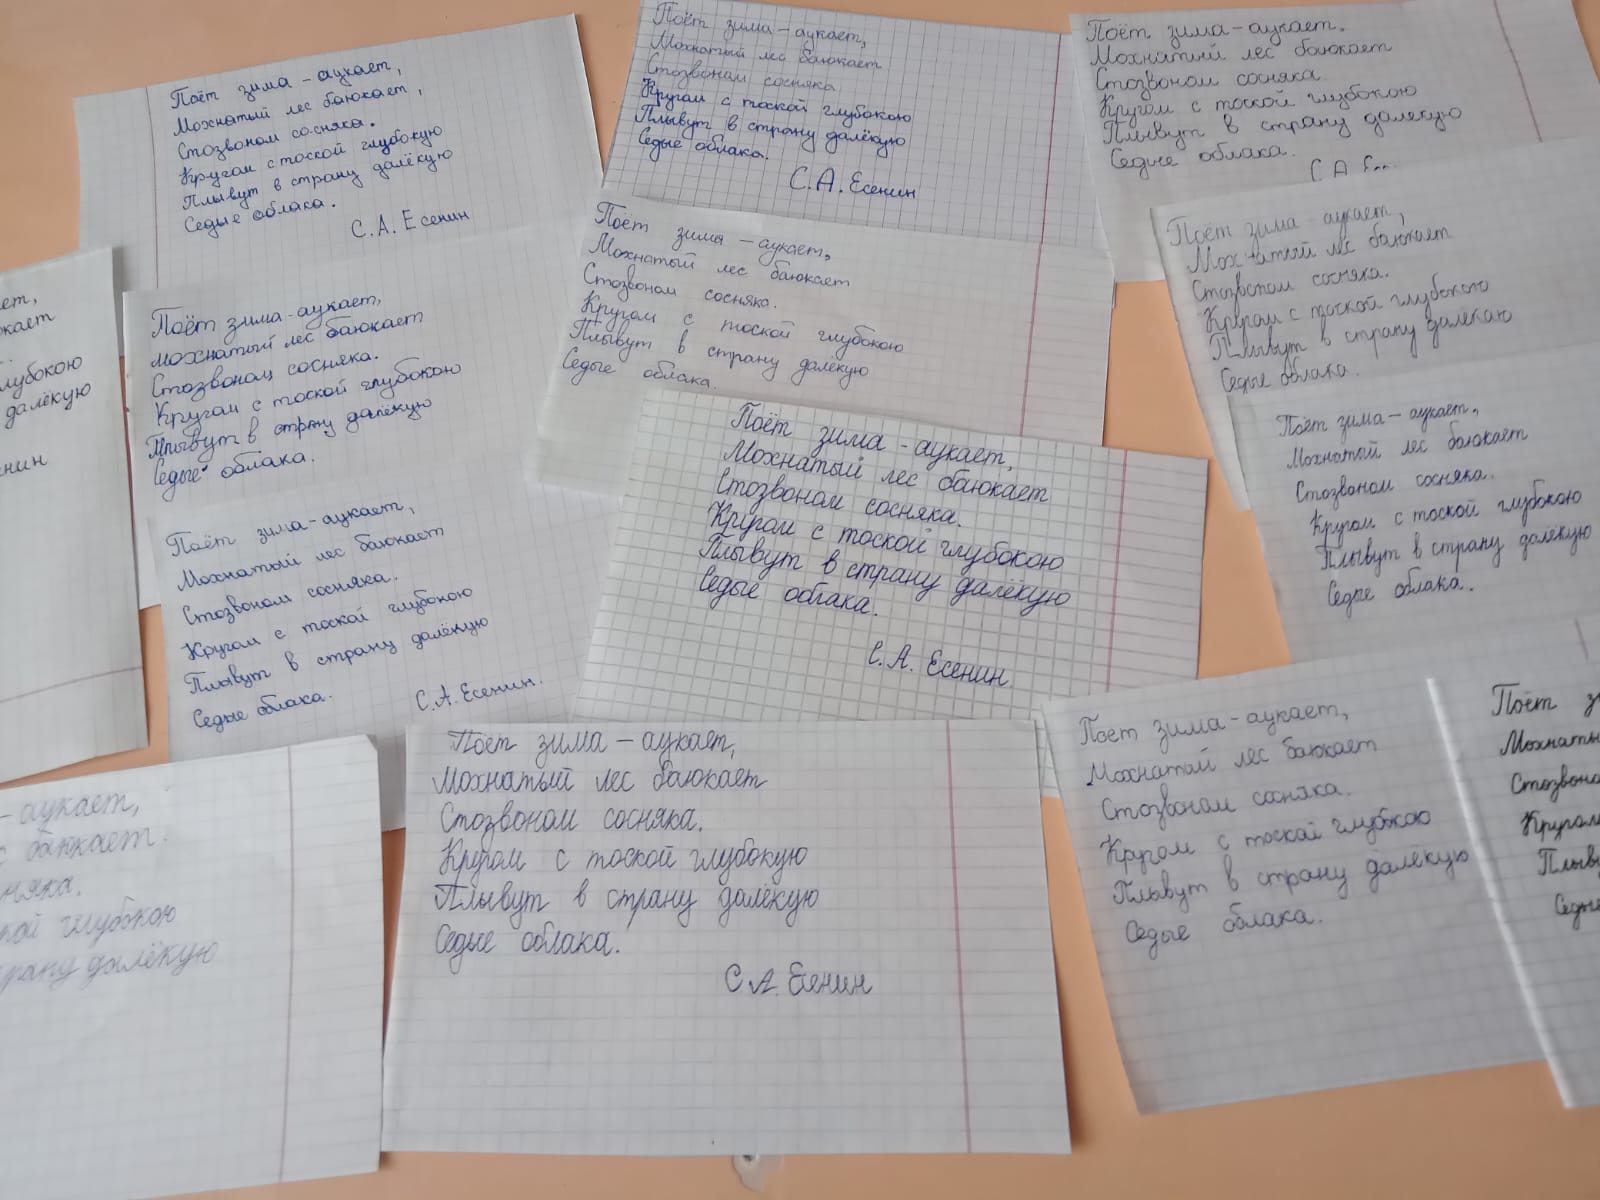 Поёт зима – аукает,
Мохнатый лес баюкает,
Стозвоном сосняка.
Кругом с тоской глубокую
Плывут в страну далёкую
Седые облака.
С.А. Есенин
Поёт зима – аукает,
Мохнатый лес баюкает
Стозвоном сосняка
Кругом с тоской глубокою
Плывут в страну далёкую
Седые облака.
С.А. Есенин
Поёт зима – аукает,
Мохнатый лес баюкает
Стозвоном сосняка.
Кругом с тоской глубокою
Плывут в страну далекую
Седые облака.
С А Е
ет,
кает
глубокою
далёкую
енин
Поёт зима – аукает,
мохнатый лес баюкает
Стозвоном сосняка.
Кругом с тоской глубокою
Плывут в страну далёкую
Седые облака.
Поёт зима – аукает,
Мохнатый лес баюкает
Стозвоном сосняка.
Кругом с тоской глубокою
Плывут в страну далёкую
Седые облака.
Поёт зима – аукает,
Мохнатый лес баюкает
Стозвоном сосняка.
Кругом с тоской глубокою
Плывут в страну далёкаю
Седые облака.
Поёт зима – аукает,
Мохнатый лес баюкает
Стозвоном сосняка.
Кругом с тоской глубокою
Плывут в страну далёкую
Седые облака.
С.А. Есенин.
Поёт зима – аукает,
Мохнатый лес баюкает
Стозвоном сосняка.
Кругом с тоской глубокою
Плывут в страну далёкую
Седые облака.
С.А. Есенин.
Поёт зима – аукает,
Мохнатый лес баюкает
Стозвоном сосняка.
Кругом с тоской глубокою
Плывут в страну далёкую
Седые облака.
– аукает,
с баюкает.
сняка.
кой глубокою
трану далёкую
Поет зима – аукает,
Мохнатый лес баюкает
Стозвоном сосняка.
Кругом с тоской глубокую
Плывут в страну далёкую
Седые облака.
С.А. Есенин
Поет зима – аукает,
Мохнатый лес баюкает
Стозвоном сосняка.
Кругом с тоской глубокою
Плывут в страну далёкую
Седые облака.
Поёт з
Мохнаты
Стозвоно
Кругом
Плыву
Седые